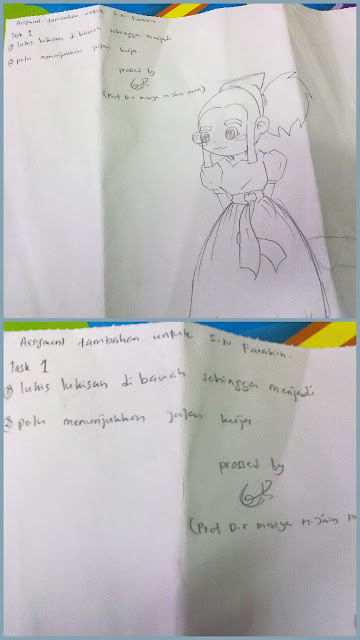 Assigment tambahan untuk S.N Farahin.
Task 1
① lukis lukisan di bawah sehingga menjadi
② perlu menunjukkan jalan kerja
prossed by
(Prof D.r masya M.
Assigment tambahan untuk S.N Farahin.
Task 1
① lukis lukisan di bawah sehingga menjadi
② perlu menunjukkan jalan kerja.
prossed by
(Prof D.r masya M.